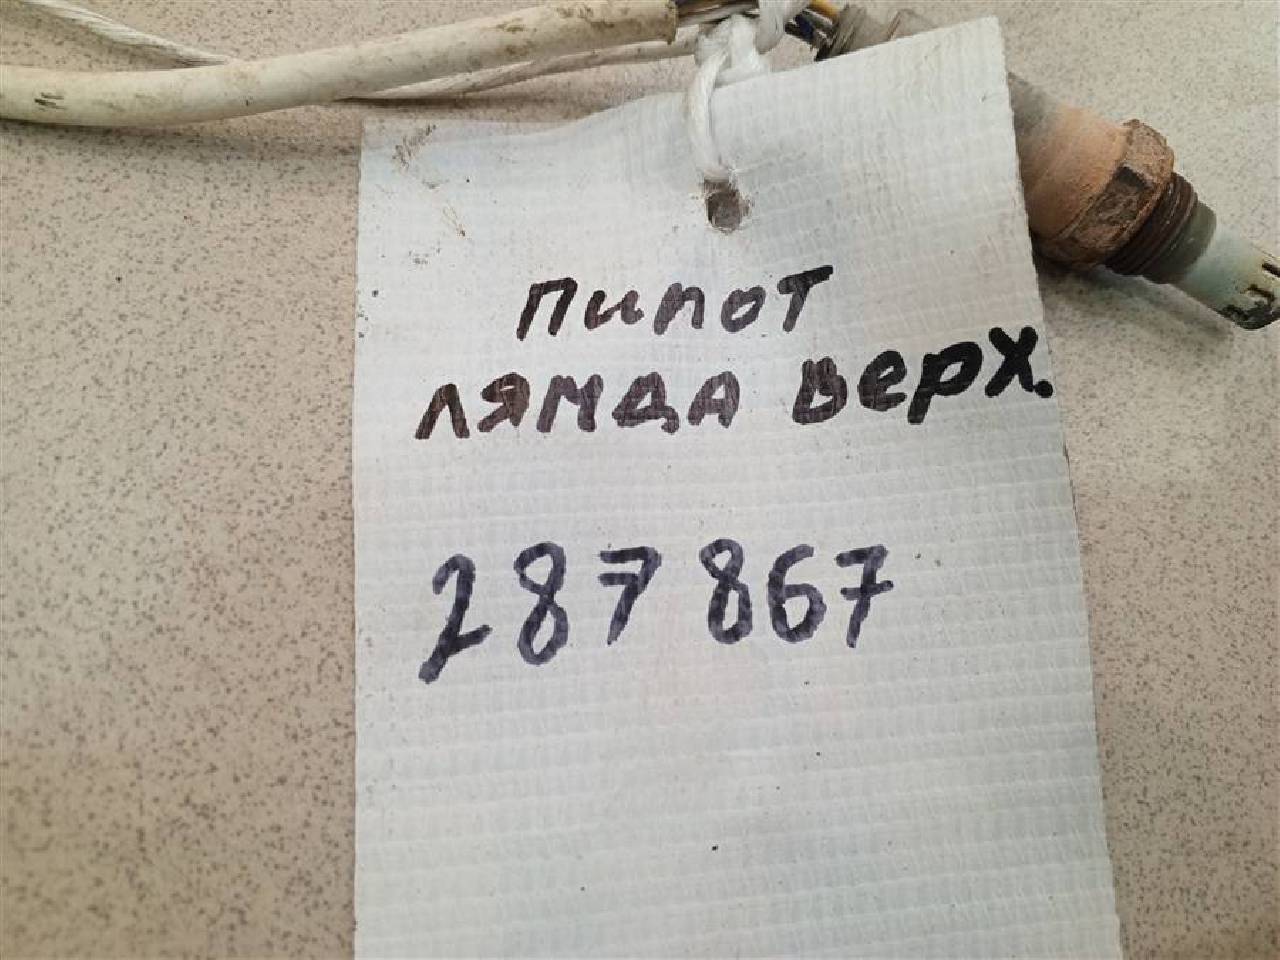 Пилот
лямда верх.
287867